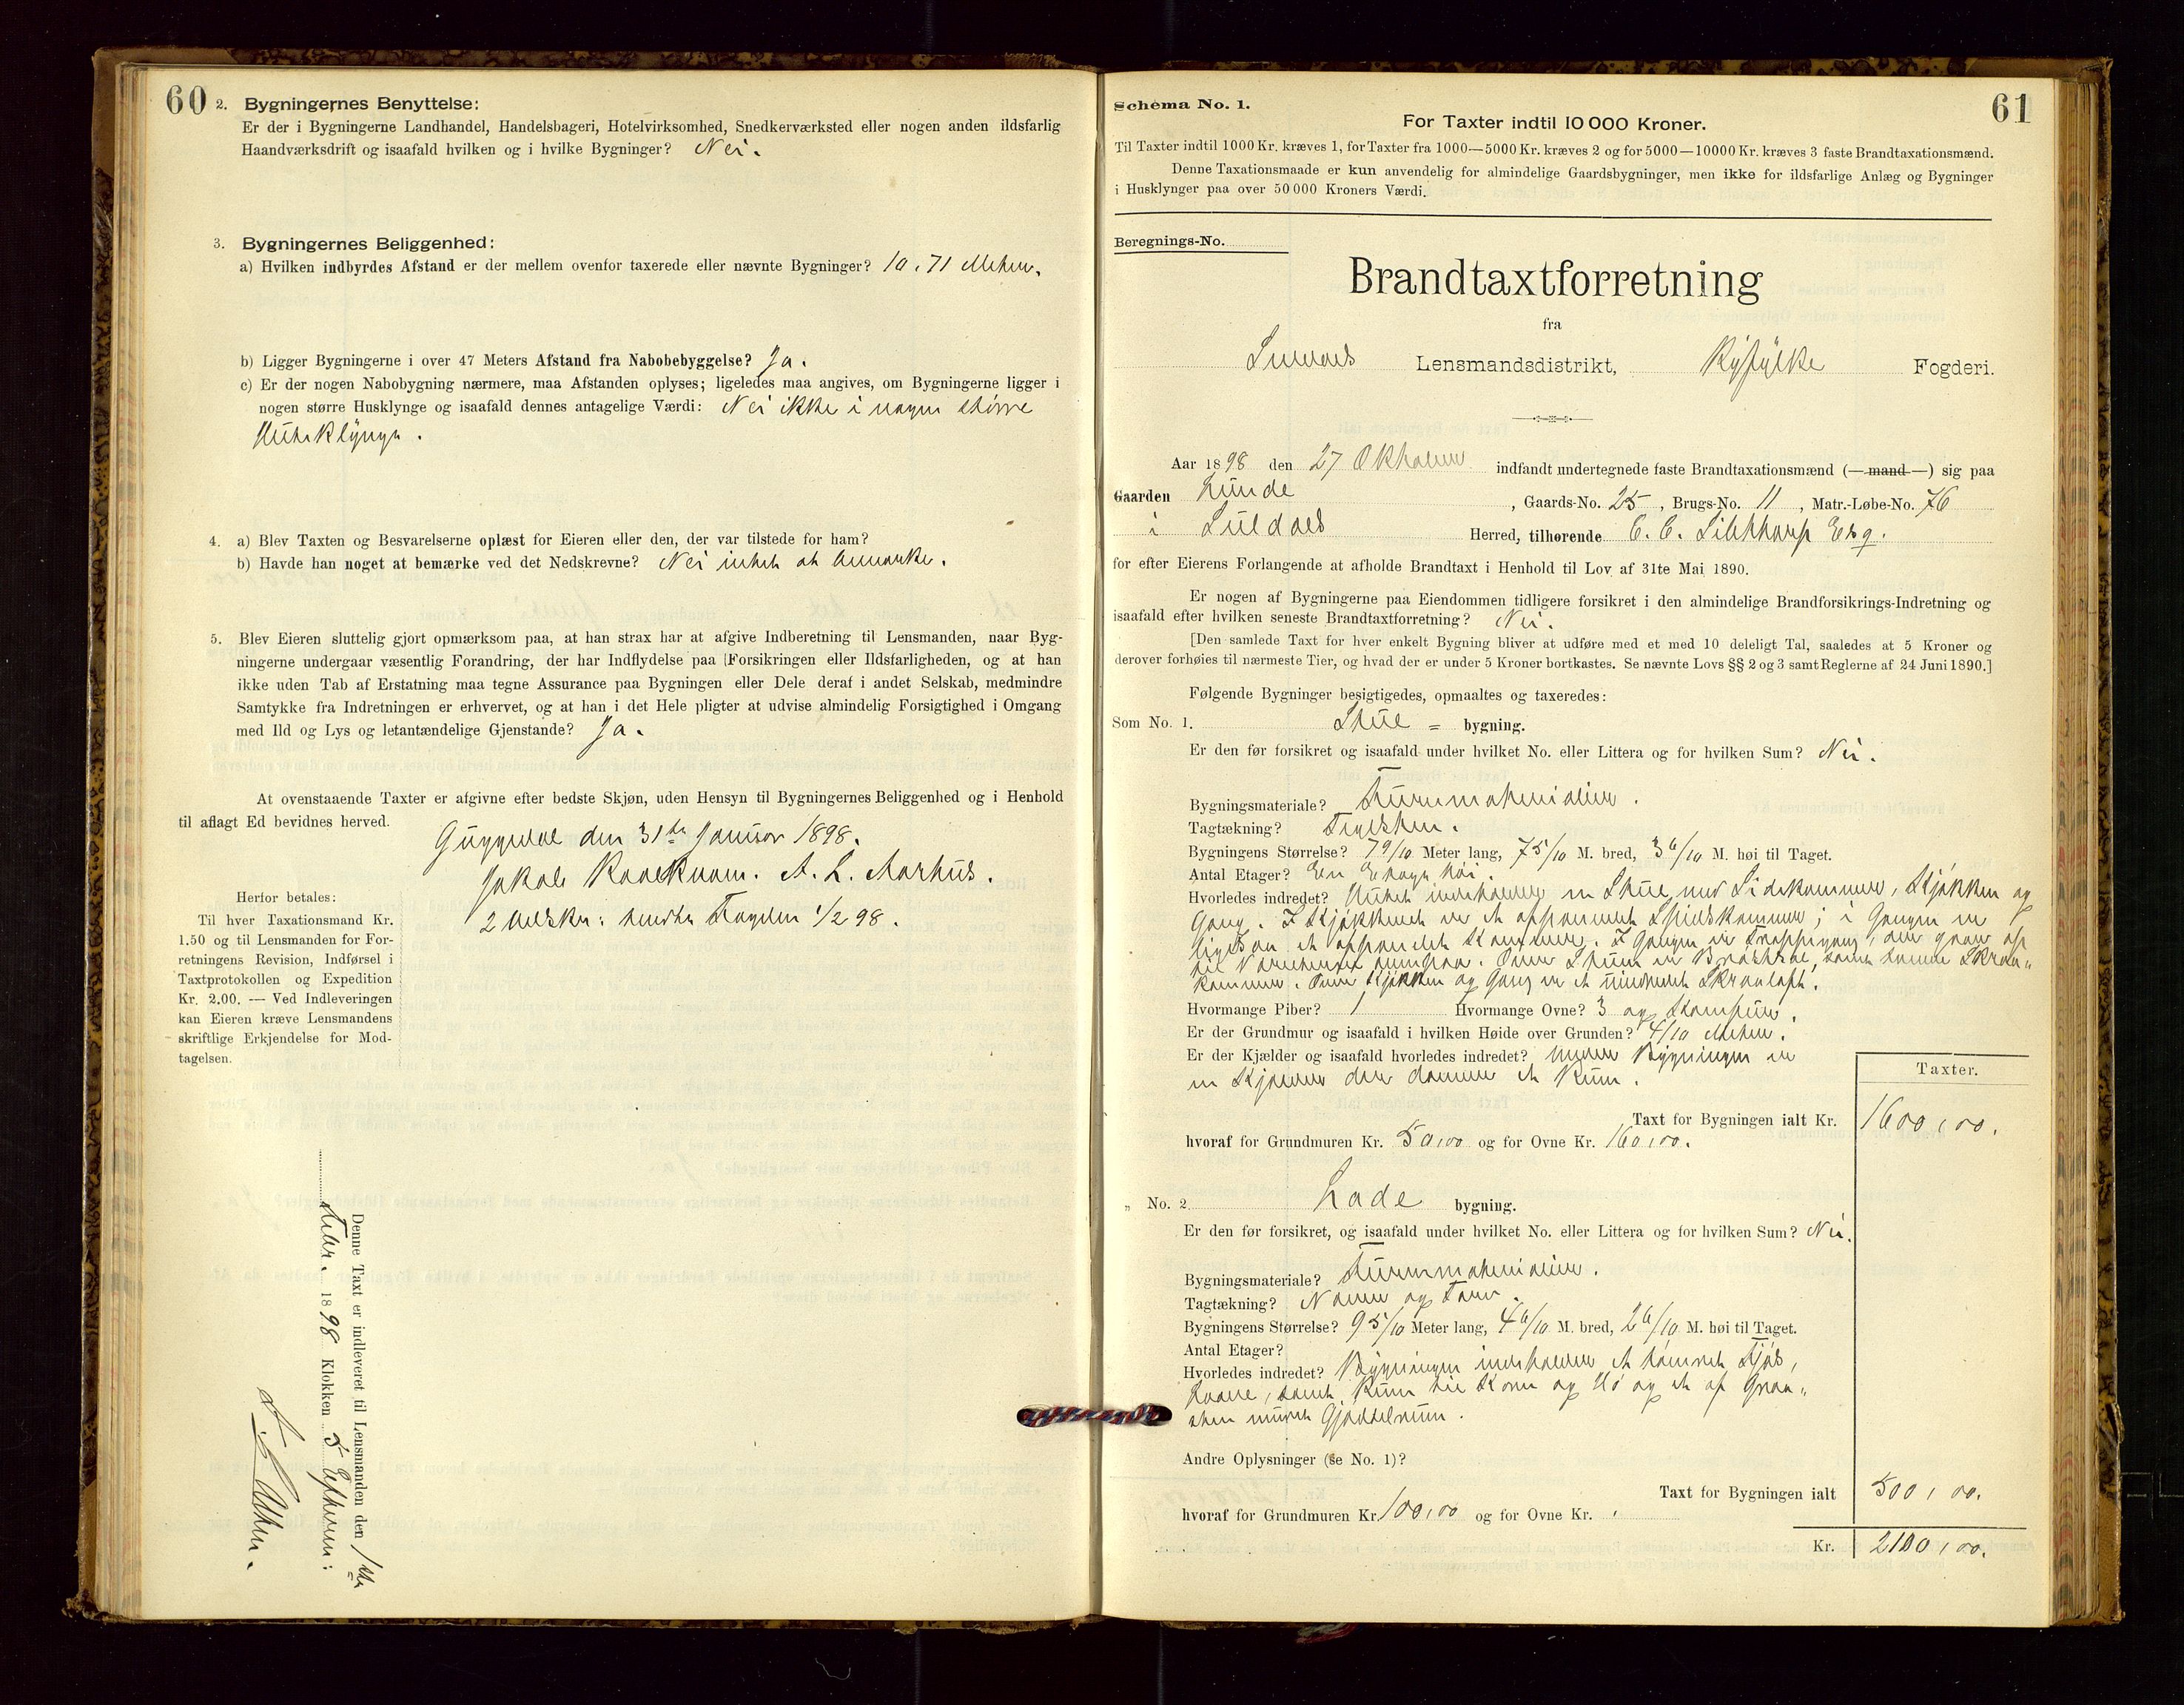 60
2. Bygningernes Benyttelse:
Er der i Bygningerne Landhandel, Handelsbageri, Hotelvirksomhed, Snedkerværksted eller nogen anden ildsfarlig
Haandværksdrift og isaafald hvilken og i hvilke Bygninger? Nei.
3. Bygningernes Beliggenhed:
a) Hvilken indbyrdes Afstand er der mellem ovenfor taxerede eller nævnte Bygninger? 10,71 Meter.
b) Ligger Bygningerne i over 47 Meters Afstand fra Nabobebyggelse? Ja.
c) Er der nogen Nabobygning nærmere, maa Afstanden oplyses; ligeledes maa angives, om Bygningerne ligger i
nogen større Husklynge og isaafald dennes antagelige Værdi: Nei ikke i nogen større
Husklynge.
4. a) Blev Taxten og Besvarelserne oplæst for Eieren eller den, der var tilstede for ham?
b) Havde han noget at bemærke ved det Nedskrevne? Nei intet at bemærke.
5. Blev Eieren sluttelig gjort opmærksom paa, at han strax har at afgive Indberetning til Lensmanden, naar Byg-
ningerne undergaar væsentlig Forandring, der har Indflydelse paa (Forsikringen eller Ildsfarligheden, og at han
ikke uden Tab af Erstatning maa tegne Assurance paa Bygningen eller Dele deraf i andet Selskab, medmindre
Samtykke fra Indretningen er erhvervet, og at han i det Hele pligter at udvise almindelig Forsigtighed i Omgang
med Ild og Lys og letantændelige Gjenstande? Ja.
At ovenstaaende Taxter er afgivne efter bedste Skjøn, uden Hensyn til Bygningernes Beliggenhed og i Henhold
til aflagt Ed bevidnes herved.
Guggedal den 31te Januar 1898.
Jakob Kvaekvam. A. L. Aarhus.
2 Udskr: sendte Fogden 1/2 98.
Herfor betales:
Til hver Taxationsmand Kr.
1.50 og til Lensmanden for For-
retningens Revision, Indførsel i
Taxtprotokollen og Expedition
Kr. 2.00. — Ved Indleveringen
kan Eieren kræve Lensmandens
skriftlige Erkjendelse for Mod-
tagelsen.
Denne Taxt er indleveret til Lensmanden den 1ste
Febr. 1898 Klokken 5 Efterm:
61
Schema No. 1.
For Taxter indtil 10 000 Kroner.
Til Taxter indtil 1000 Kr. kræves 1, for Taxter fra 1000—5000 Kr. kræves 2 og for 5000—10000 Kr. kræves 3 faste Brandtaxationsmænd.
Denne Taxationsmaade er kun anvendelig for almindelige Gaardsbygninger, men ikke for ildsfarlige Anlæg og Bygninger
i Husklynger paa over 50 000 Kroners Værdi.
Beregnings-No.
Brandtaxtforretning
fra
Suldals Lensmandsdistrikt, Ryfylke Fogderi.
Aar 1898 den 27 Oktober indfandt undertegnede faste Brandtaxationsmænd (—mand—) sig paa
Gaarden Lunde, Gaards-No. 25, Brugs-No. 11, Matr.-Løbe-No. 76
i Suldals Herred, tilhørende C. C. Esq.
for efter Eierens Forlangende at afholde Brandtaxt i Henhold til Lov af 31te Mai 1890.
Er nogen af Bygningerne paa Eiendommen tidligere forsikret i den almindelige Brandforsikrings-Indretning og
isaafald efter hvilken seneste Brandtaxtforretning? Nei.
[Den samlede Taxt for hver enkelt Bygning bliver at udføre med et med 10 deleligt Tal, saaledes at 5 Kroner og
derover forhøies til nærmeste Tier, og hvad der er under 5 Kroner bortkastes. Se nævnte Lovs §§ 2 og 3 samt Reglerne af 24 Juni 1890.]
Følgende Bygninger besigtigedes, opmaaltes og taxeredes:
Som No. 1. Stue = bygning.
Er den før forsikret og isaafald under hvilket No. eller Littera og for hvilken Sum? Nei.
Bygningsmateriale? Furumaterialier.
Tagtækning? Teglsten.
Bygningens Størrelse? 7 9/10 Meter lang, 7 5/10 M. bred, 3 6/10 M. høi til Taget.
Antal Etager? En Etage høi.
Hvorledes indredet? Huset indeholder en Stue med Sidekammer, Kjøkken og
Gang. I Kjøkkenet er et afpanelet Spisekammer; i Gangen er
ligesaa et afpanelet Kammer. I Gangen er Trappegang, der gaar op
til Værelserne ovenpaa. Over Stuen er Brystsal, samt samme Skraa-
kammer. Over Kjøkken og Gang er et uindredet Skraaloft.
Hvormange Piber? 1 Hvormange Ovne? 3 og Komfur.
Er der Grundmur og isaafald i hvilken Høide over Grunden? 4/10 Meter.
Er der Kjælder og isaafald hvorledes indredet? Under Bygningen er
en Kjælder der danner et Rum.
Taxter.
Taxt for Bygningen ialt Kr. 1600,00.
hvoraf for Grundmuren Kr. 50,00 og for Ovne Kr. 160,00.
" No. 2 Lade bygning.
Er den før forsikret, og isaafald under hvilket No. eller Littera og for hvilken Sum? Nei.
Bygningsmateriale? Furumaterialier.
Tagtækning? Næver og Torv.
Bygningens Størrelse? 9 5/10 Meter lang, 4 6/10 M. bred, 2 6/10 M. høi til Taget.
Antal Etager?
Hvorledes indredet? Bygningen indeholder et tømret Fjøs,
Laave, samt Rum til Korn og Hø og et af Graa-
sten muret Gjødselrum.
Andre Oplysninger (se No. 1)?
Taxt for Bygningen ialt 500,00.
hvoraf for Grundmuren Kr. 100,00 og for Ovne Kr. ,
Kr. 2100,00.